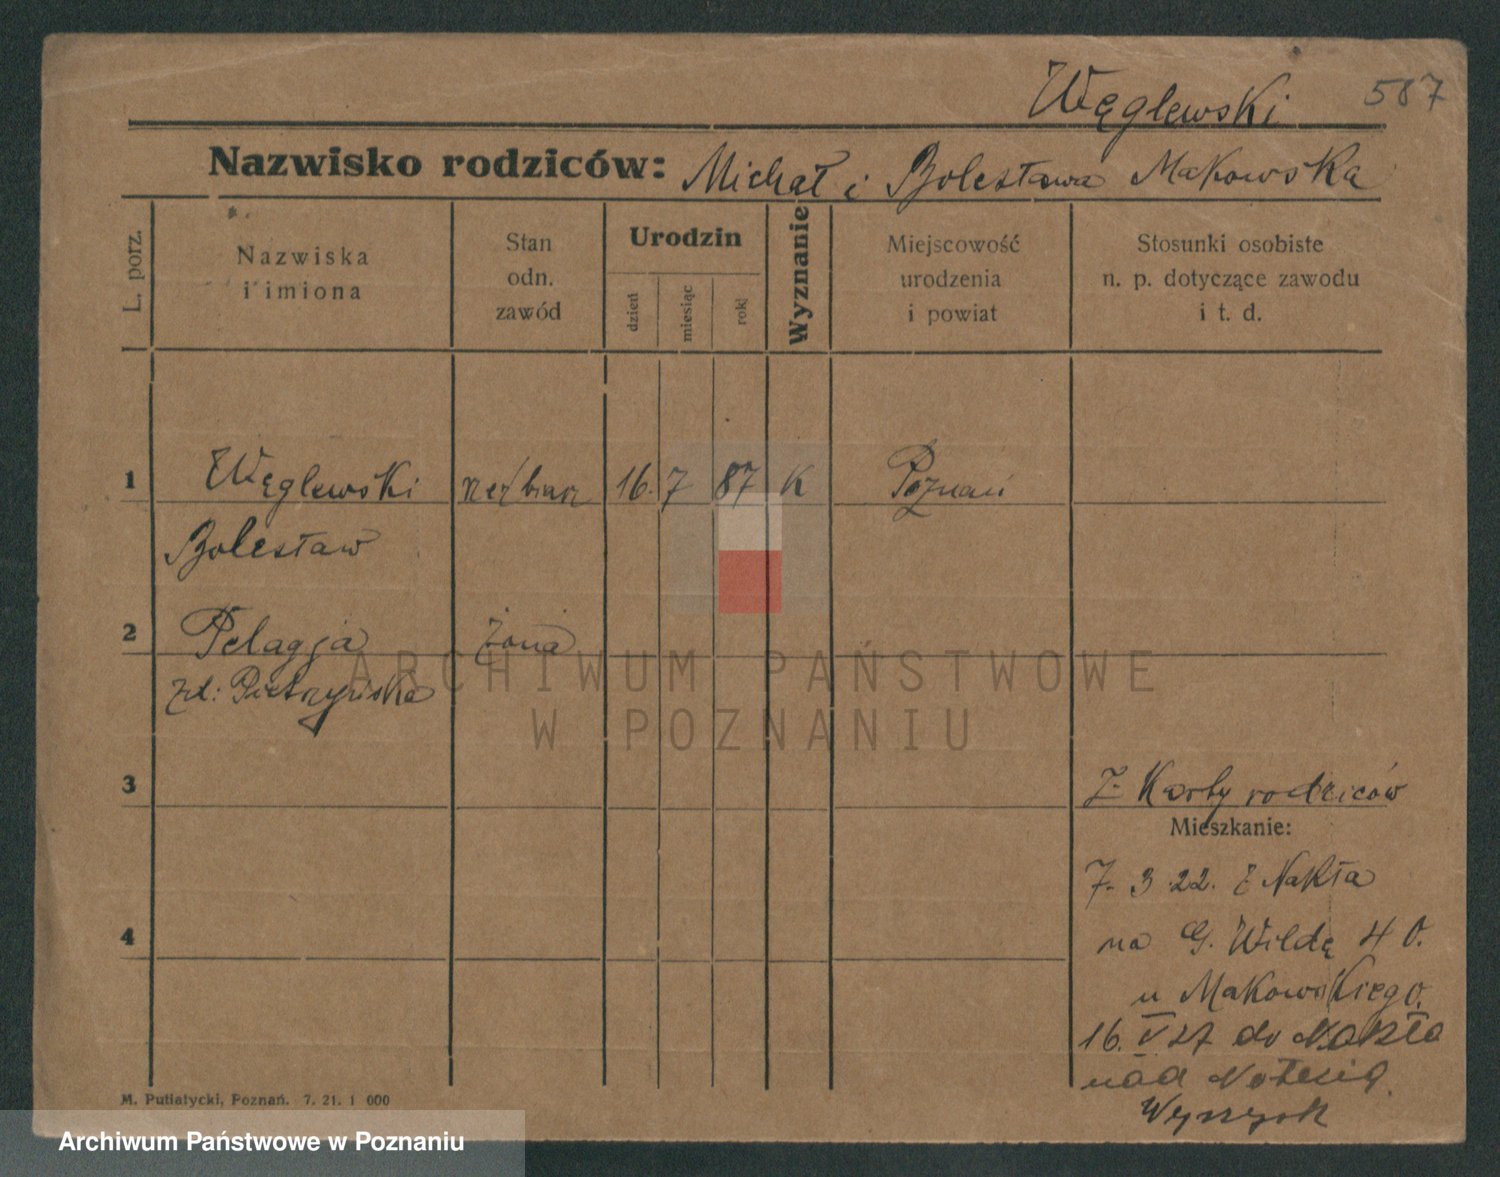 Węglewski 587
Nazwisko rodziców: Michał i Bolesława Makowska
L. porz.
Nazwiska
i imiona
Stan
odn.
zawód
Urodzin
dzień
miesiąc
rok
Wyznanie
Miejscowość
urodzenia
i powiat
Stosunki osobiste
n. p. dotyczące zawodu
i t. d.
1 Węglewski rzeźbiarz 16. 7 87 K Poznań
Bolesław
2 Pelagja żona
zd: Pietrzyńska
ARCHIWUM PAŃSTWOWE
W POZNANIU
3 Z Karty rodziców
Mieszkanie:
7. 3 22. z Nakła
4 na G. Wildę 40.
u Makowskiego.
16. V 27 do Nakło
nad Notecią
Wyrzysk
M. Putiatycki, Poznań. 7. 21. 1 000
Archiwum Państwowe w Poznaniu